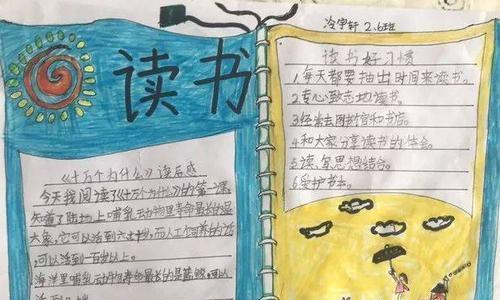 读书
《十万个为什么》读后感
今天我阅读了《十万个为什么》的第一课,
知道了陆地上哺乳动物里寿命最长的是
大象,它可以活到六七十岁,而人工饲养的话,
可以活到一百岁以上。
海洋里哺乳动物寿命最长的是蓝鲸,可以
冷宇轩 2.6班
读书好习惯
1.每天都要抽出时间来读书。
2.专心致志地读书。
3.经常去图书官和书店。
4.和大家分享读书的体会。
5.读、思想结合。
6.爱护书本。